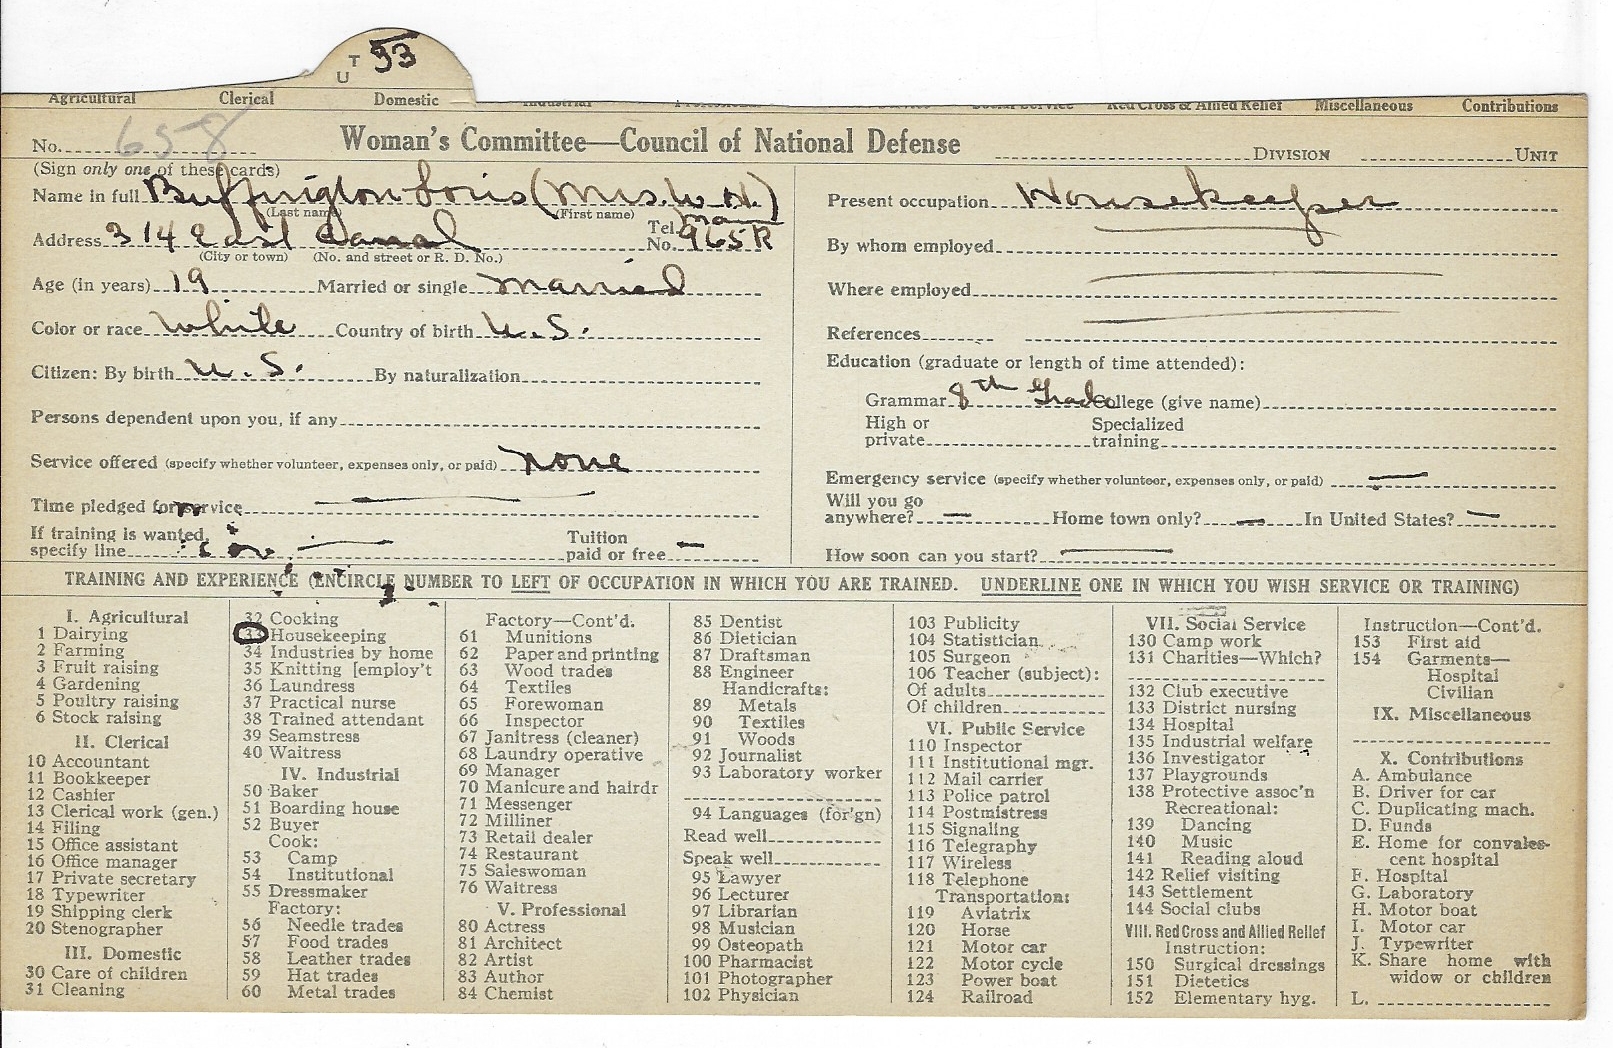 T
U 33
Agricultural Clerical Domestic Industrial Social Service Red Cross & Allied Relief Miscellaneous Contributions
No. 658 Woman's Committee—Council of National Defense DIVISION UNIT
(Sign only one of these cards)
Name in full Buffington Loris (Mrs. W. H.)
(Last name) (First name)
Address 314 East Canal Tel. No. Main 965R
(City or town) (No. and street or R. D. No.)
Age (in years) 19 Married or single married
Color or race White Country of birth U.S.
Citizen: By birth U.S. By naturalization
Persons dependent upon you, if any
Service offered (specify whether volunteer, expenses only, or paid) none
Time pledged for service
If training is wanted,
specify line Tuition
paid or free —
Present occupation Housekeeper
By whom employed
Where employed
References
Education (graduate or length of time attended):
Grammar 8th Grade College (give name)
High or
private Specialized
training
Emergency service (specify whether volunteer, expenses only, or paid) —
Will you go
anywhere? — Home town only? — In United States? —
How soon can you start? —
TRAINING AND EXPERIENCE (ENCIRCLE NUMBER TO LEFT OF OCCUPATION IN WHICH YOU ARE TRAINED. UNDERLINE ONE IN WHICH YOU WISH SERVICE OR TRAINING)
I. Agricultural
1 Dairying
2 Farming
3 Fruit raising
4 Gardening
5 Poultry raising
6 Stock raising
II. Clerical
10 Accountant
11 Bookkeeper
12 Cashier
13 Clerical work (gen.)
14 Filing
15 Office assistant
16 Office manager
17 Private secretary
18 Typewriter
19 Shipping clerk
20 Stenographer
III. Domestic
30 Care of children
31 Cleaning
32 Cooking
33 Housekeeping
34 Industries by home
35 Knitting [employ't
36 Laundress
37 Practical nurse
38 Trained attendant
39 Seamstress
40 Waitress
IV. Industrial
50 Baker
51 Boarding house
52 Buyer
Cook:
53 Camp
54 Institutional
55 Dressmaker
Factory:
56 Needle trades
57 Food trades
58 Leather trades
59 Hat trades
60 Metal trades
Factory—Cont'd.
61 Munitions
62 Paper and printing
63 Wood trades
64 Textiles
65 Forewoman
66 Inspector
67 Janitress (cleaner)
68 Laundry operative
69 Manager
70 Manicure and hairdr
71 Messenger
72 Milliner
73 Retail dealer
74 Restaurant
75 Saleswoman
76 Waitress
V. Professional
80 Actress
81 Architect
82 Artist
83 Author
84 Chemist
85 Dentist
86 Dietician
87 Draftsman
88 Engineer
Handicrafts:
89 Metals
90 Textiles
91 Woods
92 Journalist
93 Laboratory worker
94 Languages (for'gn)
Read well
Speak well
95 Lawyer
96 Lecturer
97 Librarian
98 Musician
99 Osteopath
100 Pharmacist
101 Photographer
102 Physician
103 Publicity
104 Statistician
105 Surgeon
106 Teacher (subject):
Of adults
Of children
VI. Public Service
110 Inspector
111 Institutional mgr.
112 Mail carrier
113 Police patrol
114 Postmistress
115 Signaling
116 Telegraphy
117 Wireless
118 Telephone
Transportation:
119 Aviatrix
120 Horse
121 Motor car
122 Motor cycle
123 Power boat
124 Railroad
VII. Social Service
130 Camp work
131 Charities—Which?
132 Club executive
133 District nursing
134 Hospital
135 Industrial welfare
136 Investigator
137 Playgrounds
138 Protective assoc'n
Recreational:
139 Dancing
140 Music
141 Reading aloud
142 Relief visiting
143 Settlement
144 Social clubs
VIII. Red Cross and Allied Relief
Instruction:
150 Surgical dressings
151 Dietetics
152 Elementary hyg.
Instruction—Cont'd.
153 First aid
154 Garments—
Hospital
Civilian
IX. Miscellaneous
X. Contributions
A. Ambulance
B. Driver for car
C. Duplicating mach.
D. Funds
E. Home for convales-
cent hospital
F. Hospital
G. Laboratory
H. Motor boat
I. Motor car
J. Typewriter
K. Share home with
widow or children
L.